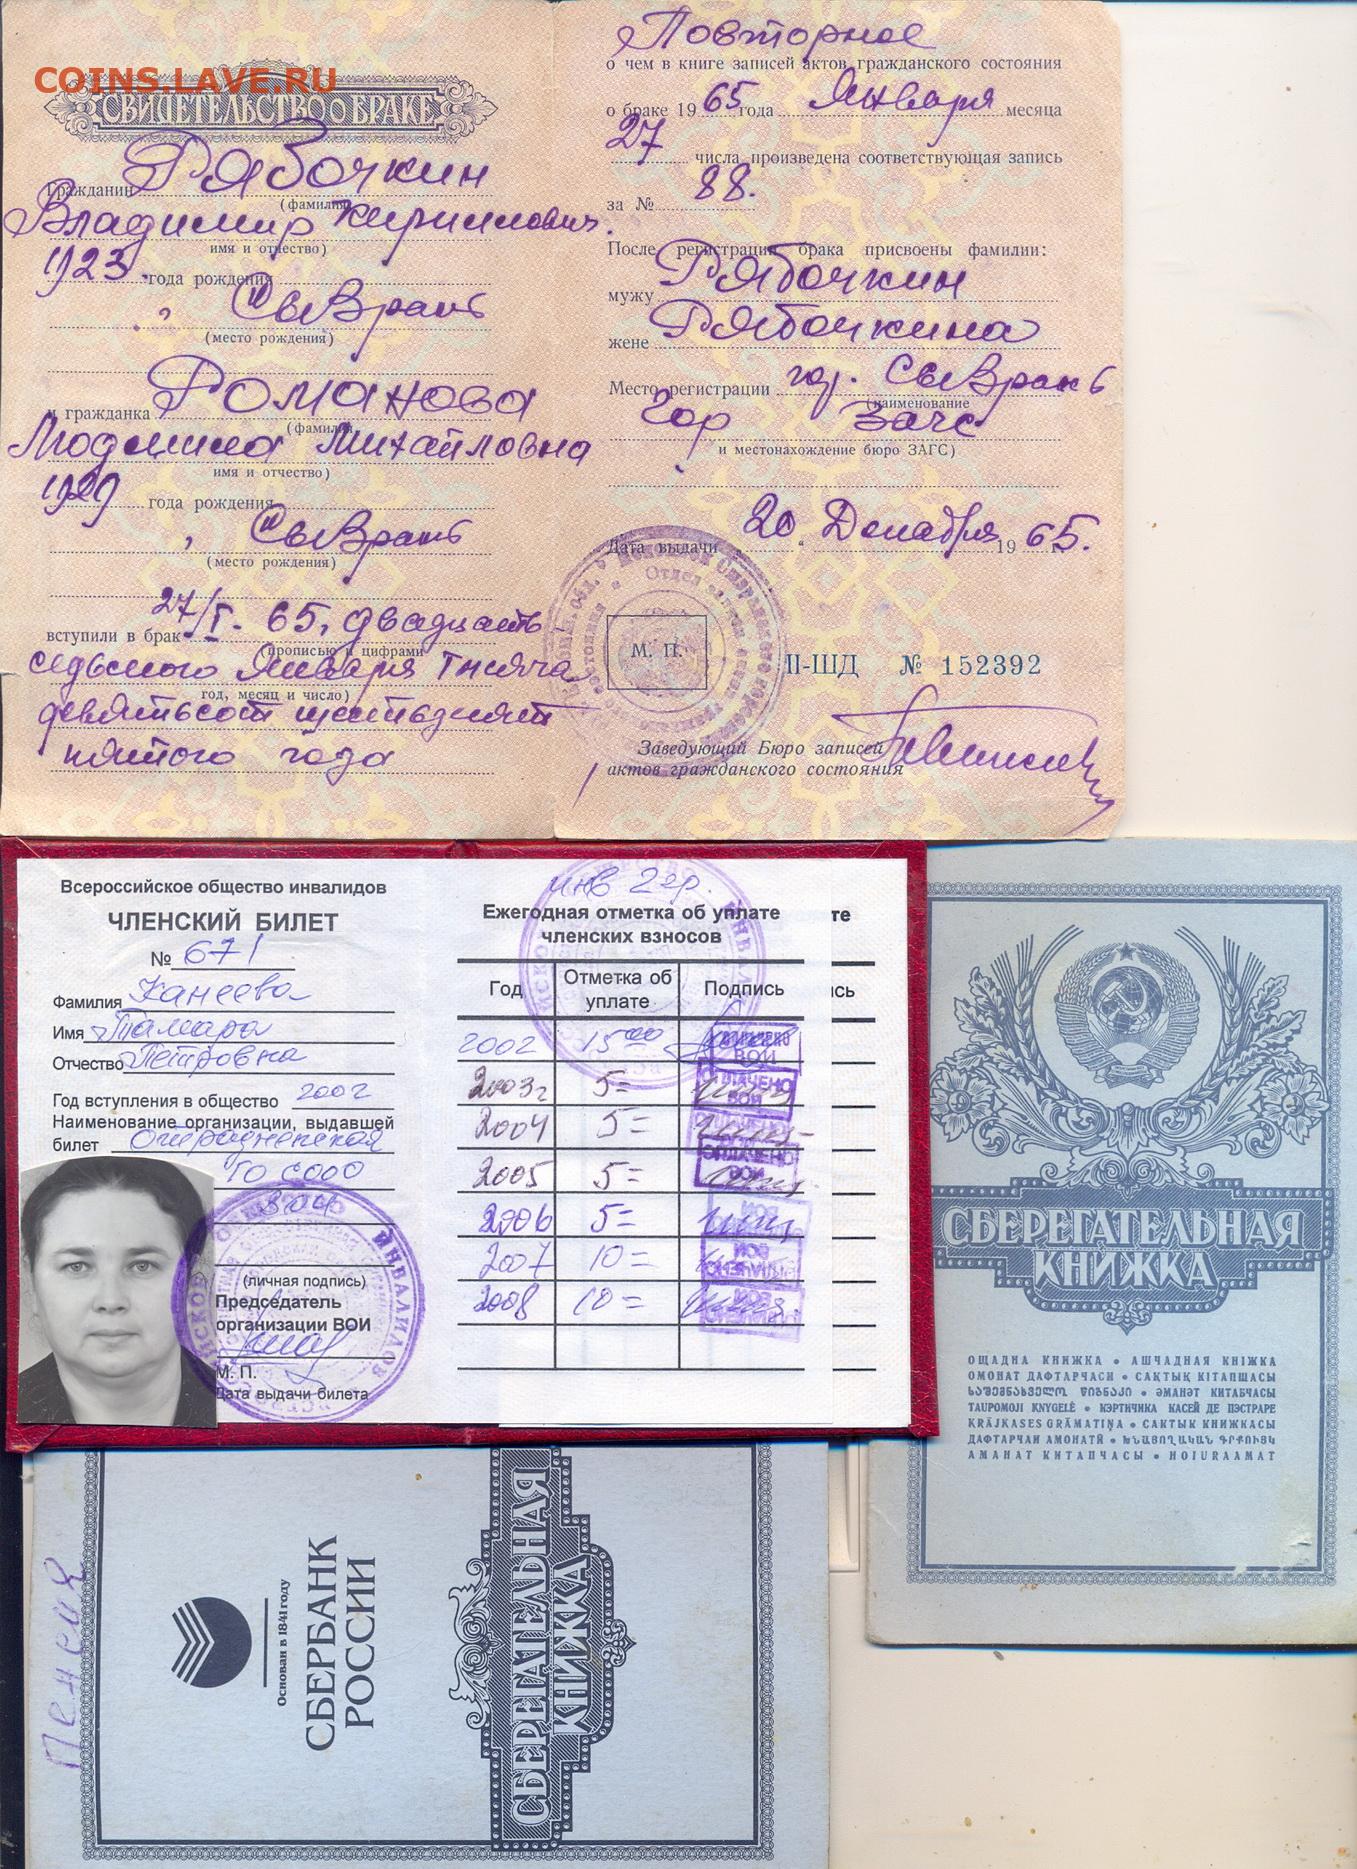 COINS.LAVE.RU
СВИДЕТЕЛЬСТВО О БРАКЕ
Гражданин Рябочкин
(фамилия)
Владимир Кириллович.
имя и отчество)
1923 года рождения
, "Сызрань
(место рождения)
и гражданка Романова
(фамилия)
Людмила Михайловна
имя и отчество)
1929 года рождения
, "Сызрань
(место рождения)
вступили в брак 27/I-65, двадцать
(прописью и цифрами
седьмого Января тысяча
год, месяц и число)
девятьсот шестьдесят
пятого года
Повторное
о чем в книге записей актов гражданского состояния
о браке 1965 года Января месяца
27 числа произведена соответствующая запись
за № 88.
После регистрации брака присвоены фамилии:
мужу Рябочкин
жене Рябочкина
Место регистрации гор. Сызрань
(наименование
Гор Загс
и местонахождение бюро ЗАГС)
Дата выдачи 20 „ Декабря 1965.
М. П.
II-ШД № 152392
Заведующий Бюро записей
актов гражданского состояния
Всероссийское общество инвалидов
ЧЛЕНСКИЙ БИЛЕТ
№ 671
Фамилия Канеева
Имя Тамара
Отчество Петровна
Год вступления в общество 2002
Наименование организации, выдавшей
билет Отрадненская
ГО СООО
ВОИ
(личная подпись)
Председатель
организации ВОИ
М. П.
Дата выдачи билета
ИНВАЛИДОВ
инв 2 гр.
Ежегодная отметка об уплате
членских взносов
Год Отметка об уплате Подпись
2002 15=00
2003г 5=
2004 5=
2005 5=
2006 5=
2007 10=
2008 10=
ОПЛАЧЕНО
ВОИ
те
сь
СБЕРЕГАТЕЛЬНАЯ
КНИЖКА
ОЩАДНА КНИЖКА • АШЧАДНАЯ КНІЖКА
ОМОНАТ ДАФТАРЧАСИ • САҚТЫҚ КІТАПШАСЫ
ᲡᲐᲨᲔᲛᲜᲐᲮᲕᲔᲚᲝ ᲬᲘᲒᲜᲐᲙᲘ • ӘМАНӘТ КИТАБЧАСЫ
TAUPOMOJI KNYGELĖ • КЭРТИЧИКА КАСЕЙ ДЕ ПЭСТРАРЕ
KRĀJKASES GRĀMATIŅA • САКТЫК КНИЖКАСЫ
ДАФТАРЧАИ АМОНАТӢ • ԽՆԱՅՈՂԱԿԱՆ ԳՐՔՈՒՅԿ
АМАНАТ КИТАПЧАСЫ • HOIURAAMAT
Пенсия
Основан в 1841 году
СБЕРБАНК
РОССИИ
СБЕРЕГАТЕЛЬНАЯ
КНИЖКА